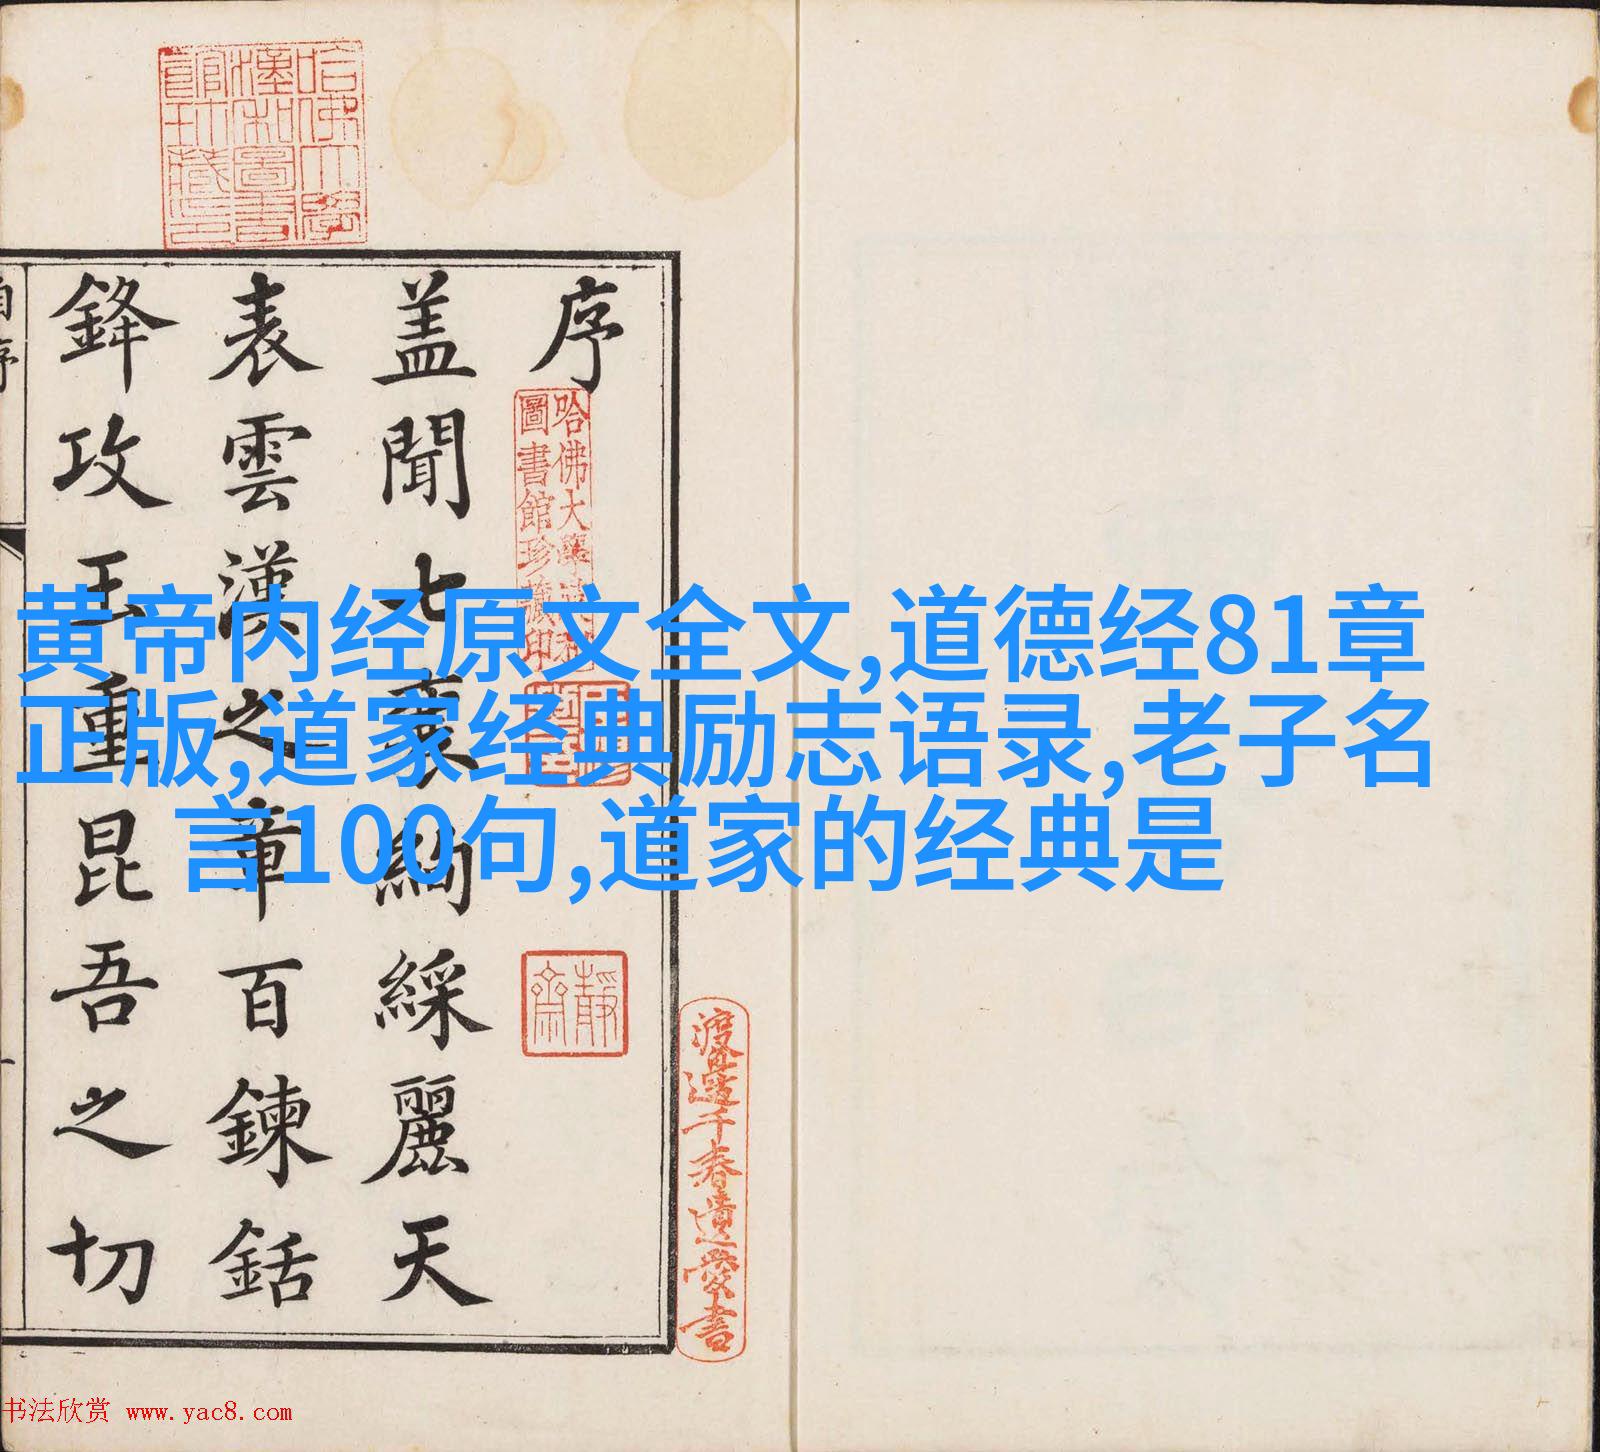 序
盖聞七襄絢綵麗天
表雲漢之章百鍊銛
鋒攻玉重昆吾之切
自序
哈佛大學漢和
圖書館珍藏印
哈佛大學
漢和圖書
館珎藏印
靜齋
渡邊千春遺愛書
黄帝内经原文全文,道德经81章
正版,道家经典励志语录,老子名
言100句,道家的经典是
书法欣赏 www.yac8.com